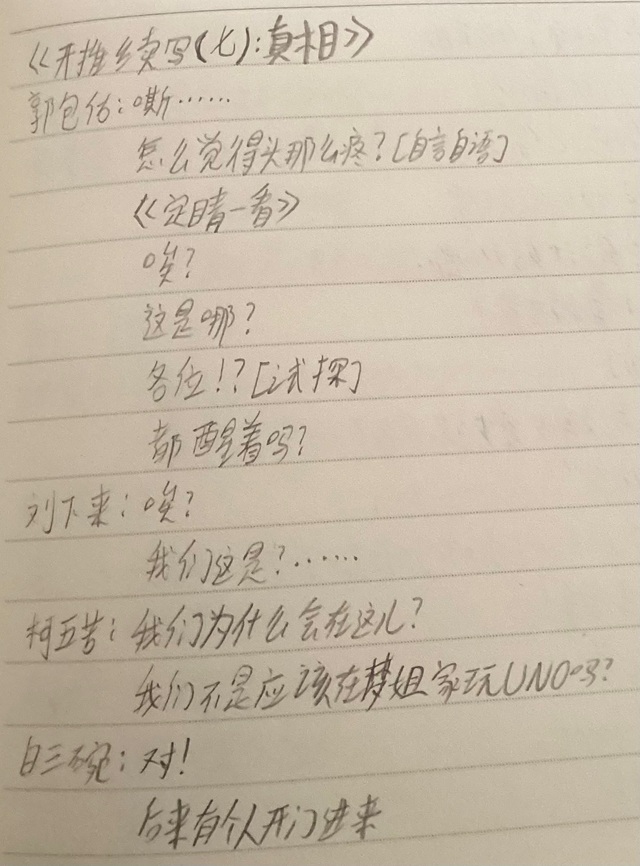 《开推乡卖写(七):真相》
郭包估:嘶……
怎么觉得头那么疼?[自言自语]
《定睛一看》
唉?
这是哪?
各位!?[试探]
都醒着吗?
刘下来:唉?
我们这是?……
柯五苦:我们为什么会在这儿?
我们不是应该在梦姐家玩UNO吗?
白三碗:对!
后来有个人开门进来